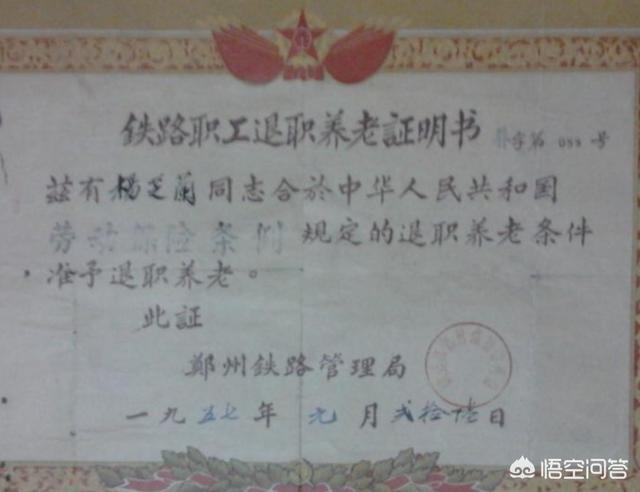 铁路职工退职养老証明书
字第 088 号
茲有杨芝蘭同志合於中华人民共和国
劳动保险条例规定的退职养老条件
，准予退职养老。
此証
鄭州铁路管理局
一九五七年元月弍拾陸日
悟空问答